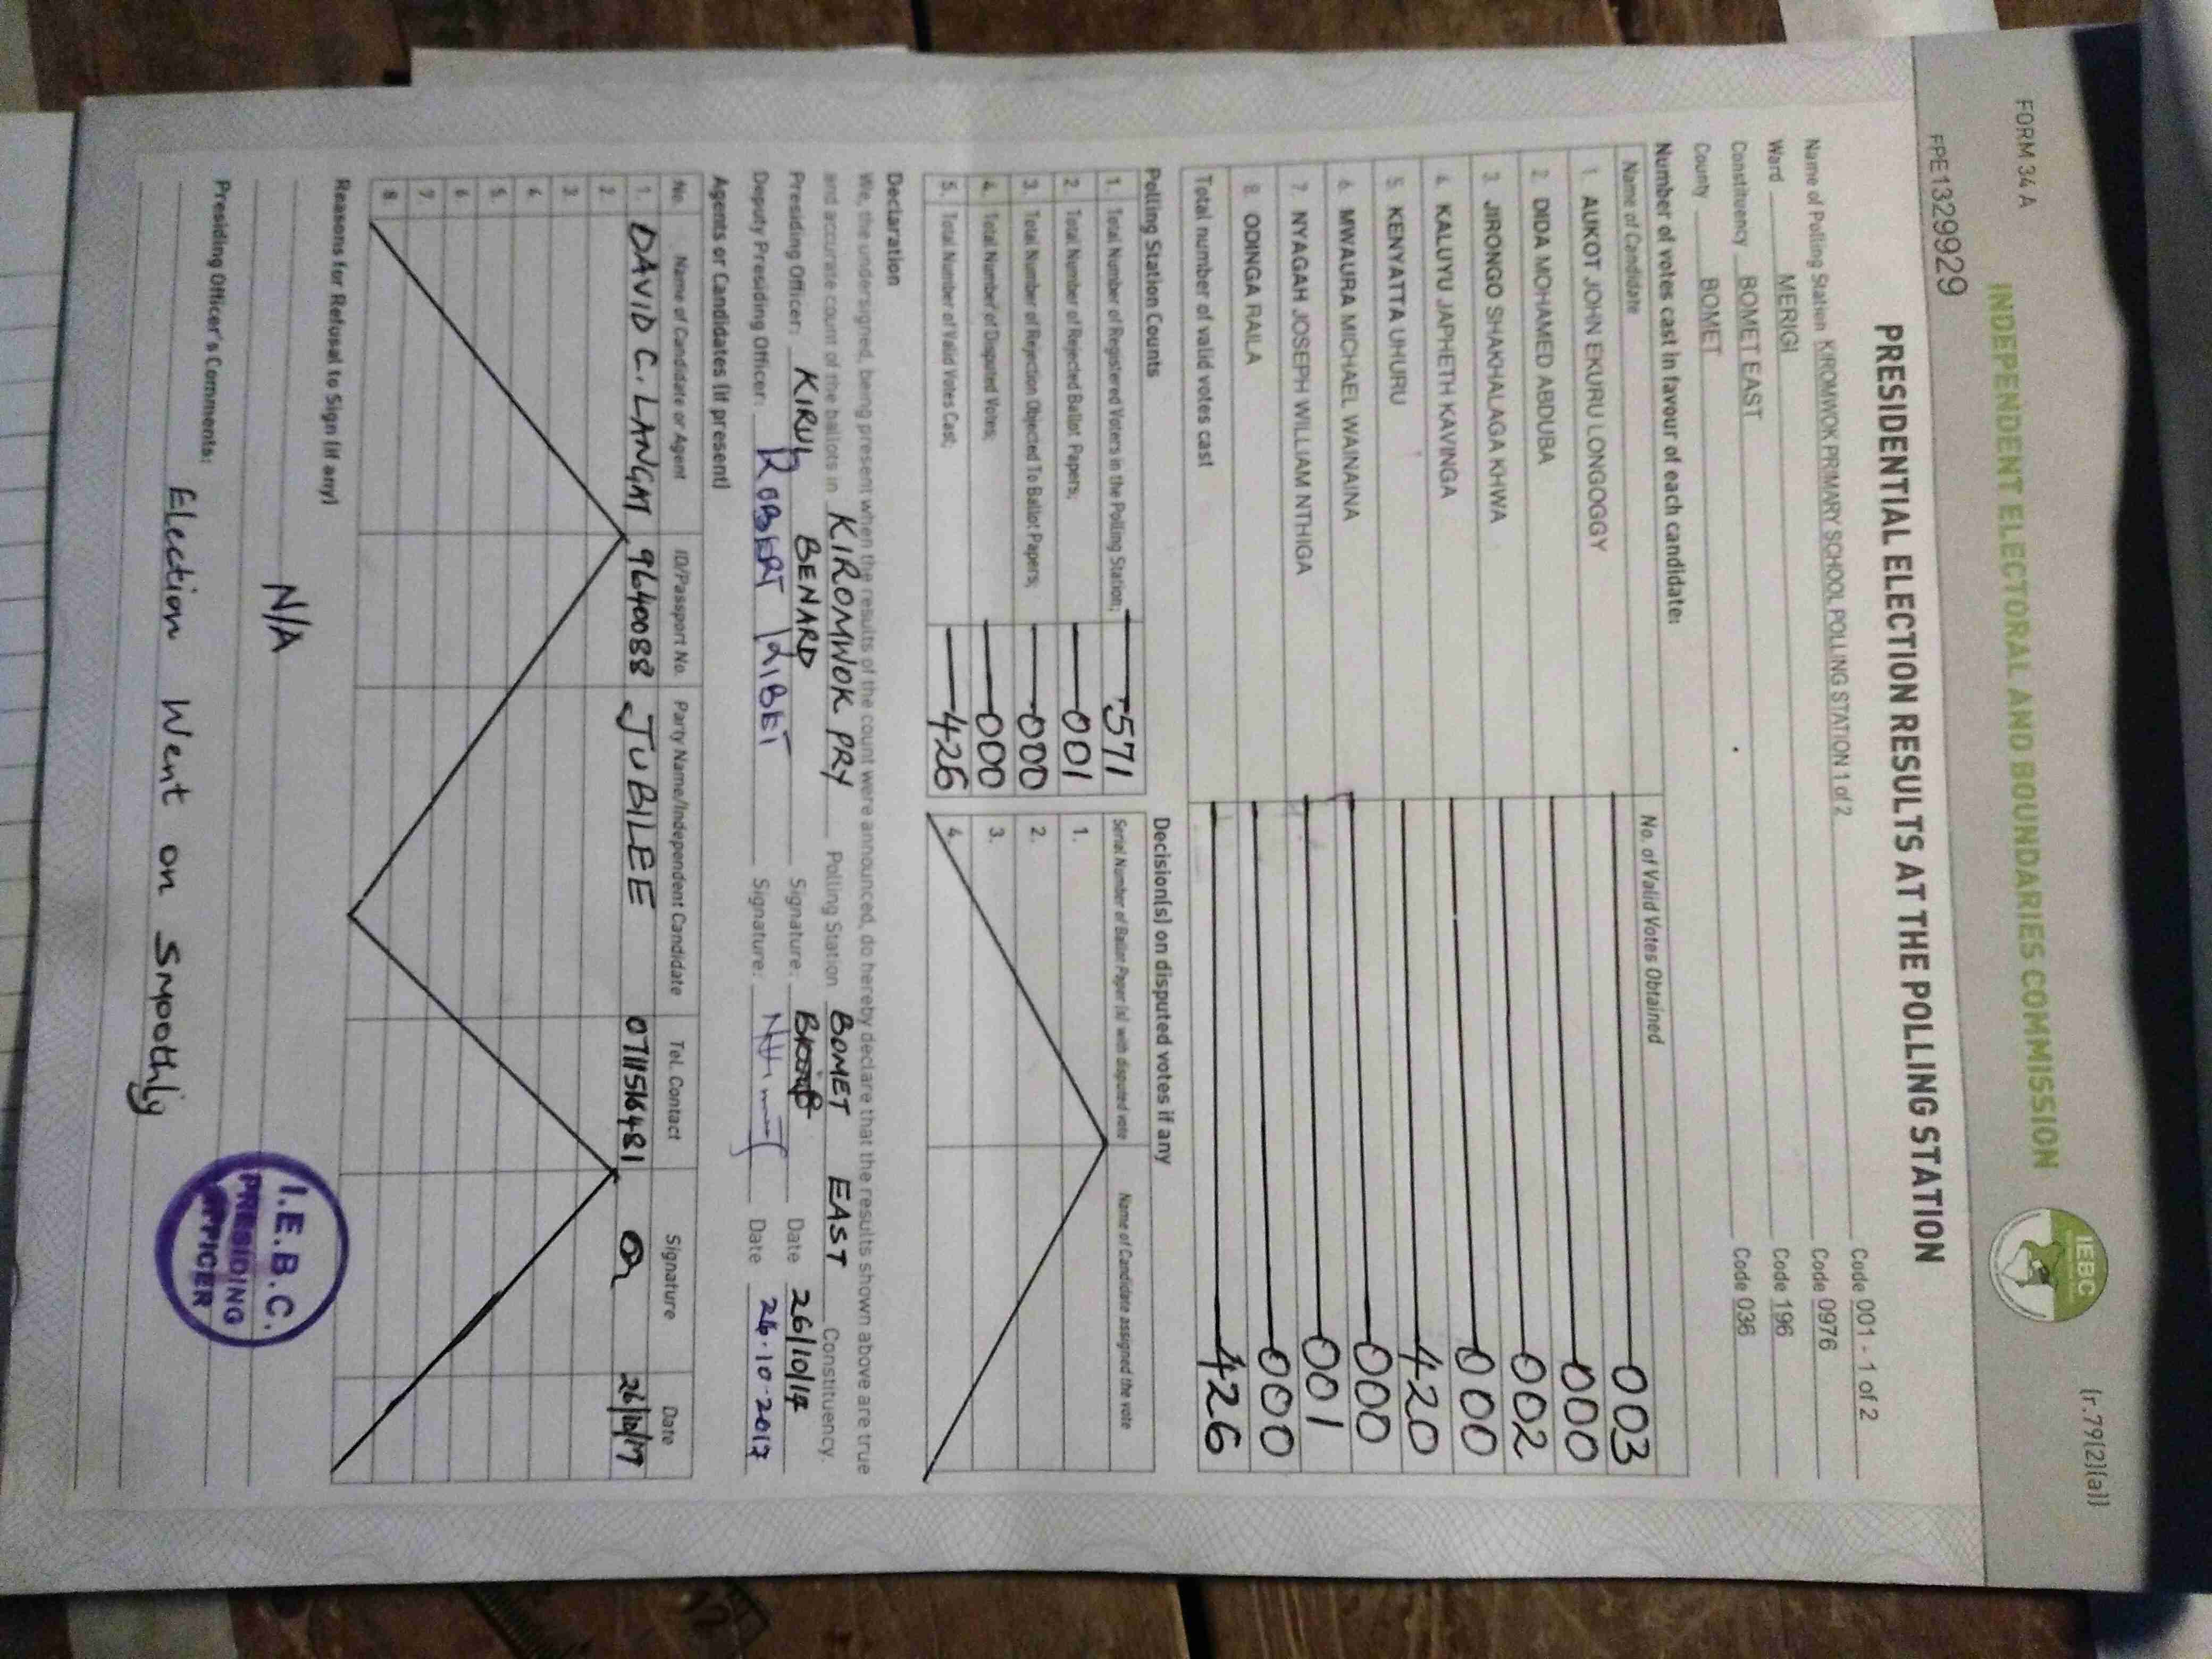 FORM 34 A
(r.79(2)(a))
INDEPENDENT ELECTORAL AND BOUNDARIES COMMISSION
IEBC
FPE1329929
PRESIDENTIAL ELECTION RESULTS AT THE POLLING STATION
Name of Polling Station KIROMWOK PRIMARY SCHOOL POLLING STATION 1 of 2 Code 001 - 1 of 2
Ward MERIGI Code 0976
Constituency BOMET EAST Code 196
County BOMET Code 036
Number of votes cast in favour of each candidate:
Name of Candidate No. of Valid Votes Obtained
1. AUKOT JOHN EKURU LONGOGGY 003
2. DIDA MOHAMED ABDUBA 000
3. JIRONGO SHAKHALAGA KHWA 002
4. KALUYU JAPHETH KAVINGA 000
5. KENYATTA UHURU 420
6. MWAURA MICHAEL WAINAINA 000
7. NYAGAH JOSEPH WILLIAM NTHIGA 001
8. ODINGA RAILA 000
Total number of valid votes cast 426
Polling Station Counts
1. Total Number of Registered Voters in the Polling Station; 571
2. Total Number of Rejected Ballot Papers; 001
3. Total Number of Rejection Objected To Ballot Papers; 000
4. Total Number of Disputed Votes; 000
5. Total Number of Valid Votes Cast; 426
Decision(s) on disputed votes if any
Serial Number of Ballot Paper (s) with disputed vote Name of Candidate assigned the vote
1.
2.
3.
4.
Declaration
We, the undersigned, being present when the results of the count were announced, do hereby declare that the results shown above are true
and accurate count of the ballots in KIROMWOK PRY Polling Station BOMET EAST Constituency.
Presiding Officer: KIRUI BENARD Signature: Date 26/10/17
Deputy Presiding Officer: ROBERT KIBET Signature: Date 26.10.2017
Agents or Candidates (if present)
No. Name of Candidate or Agent ID/Passport No. Party Name/Independent Candidate Tel. Contact Signature Date
1. DAVID C. LANGAT 9640088 JUBILEE 0711516481 26/10/17
2.
3.
4.
5.
6.
7.
8.
Reasons for Refusal to Sign (if any)
N/A
Presiding Officer's Comments:
Election Went on Smoothly
I.E.B.C.
PRESIDING
OFFICER